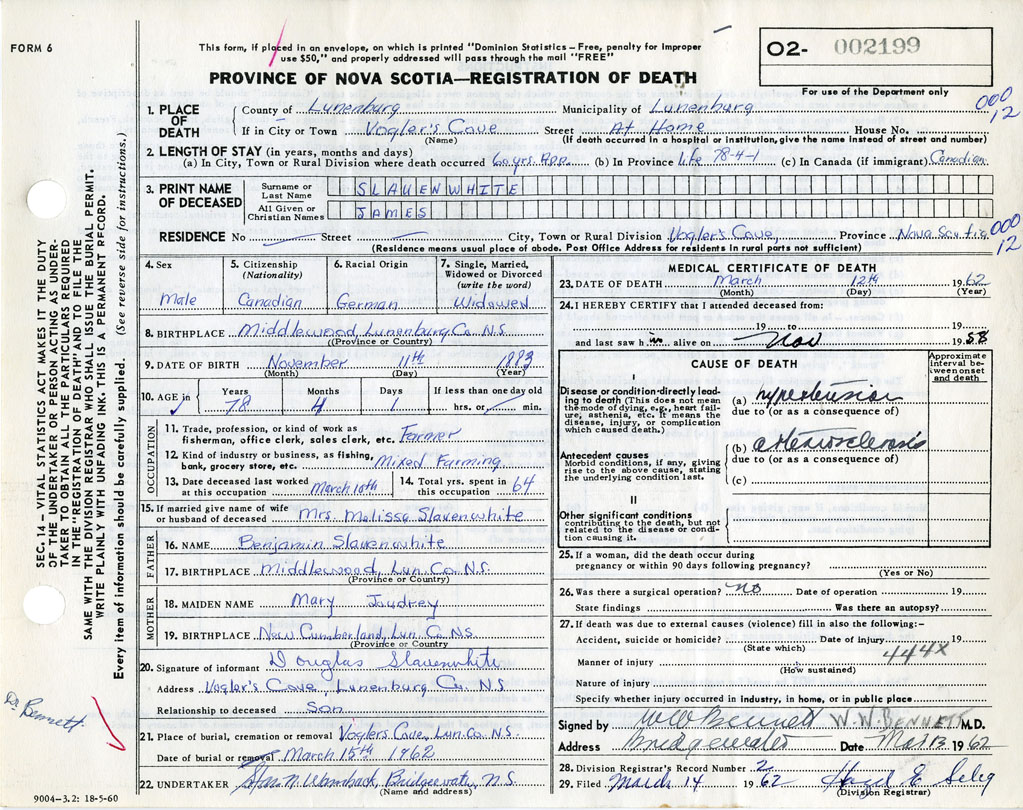 FORM 6
This form, if placed in an envelope, on which is printed "Dominion Statistics – Free, penalty for improper
use $50," and properly addressed will pass through the mail "FREE"
PROVINCE OF NOVA SCOTIA—REGISTRATION OF DEATH
O2- 002199
For use of the Department only
000
12
SEC. 14 – VITAL STATISTICS ACT MAKES IT THE DUTY
OF THE UNDERTAKER OR PERSON ACTING AS UNDER-
TAKER TO OBTAIN ALL THE PARTICULARS REQUIRED
IN THE "REGISTRATION OF DEATH" AND TO FILE THE
SAME WITH THE DIVISION REGISTRAR WHO SHALL ISSUE THE BURIAL PERMIT.
WRITE PLAINLY WITH UNFADING INK. THIS IS A PERMANENT RECORD.
Every item of information should be carefully supplied. (See reverse side for instructions.)
1. PLACE OF DEATH County of Lunenburg Municipality of Lunenburg
If in City or Town Vogler's Cove Street At Home House No.
(Name) (If death occurred in a hospital or institution, give the name instead of street and number)
2. LENGTH OF STAY (in years, months and days)
(a) In City, Town or Rural Division where death occurred 60 yrs. App. (b) In Province Life 78-4-1 (c) In Canada (if immigrant) Canadian
3. PRINT NAME OF DECEASED Surname or Last Name SLAUENWHITE
All Given or Christian Names JAMES
RESIDENCE No Street City, Town or Rural Division Vogler's Cove, Province Nova Scotia
000
12
(Residence means usual place of abode. Post Office Address for residents in rural parts not sufficient)
4. Sex 5. Citizenship (Nationality) 6. Racial Origin 7. Single, Married, Widowed or Divorced (write the word)
Male Canadian German Widowed
8. BIRTHPLACE Middlewood, Lunenburg Co. N.S.
(Province or Country)
9. DATE OF BIRTH November 11th 1883
(Month) (Day) (Year)
10. AGE in Years Months Days If less than one day old
78 4 1 hrs. or min.
OCCUPATION
11. Trade, profession, or kind of work as
fisherman, office clerk, sales clerk, etc. Farmer
12. Kind of industry or business, as fishing,
bank, grocery store, etc. Mixed Farming
13. Date deceased last worked at this occupation March 10th 14. Total yrs. spent in this occupation 64
15. If married give name of wife
or husband of deceased Mrs. Melissa Slauenwhite
FATHER
16. NAME Benjamin Slauenwhite
17. BIRTHPLACE Middlewood, Lun. Co. N.S.
(Province or Country)
MOTHER
18. MAIDEN NAME Mary Joudrey
19. BIRTHPLACE New Cumberland, Lun. Co. N.S.
(Province or Country)
20. Signature of informant Douglas Slauenwhite
Address Vogler's Cove, Lunenburg Co. N.S.
Relationship to deceased Son
Dr Bennett
21. Place of burial, cremation or removal Voglers Cove, Lun. Co. N.S.
Date of burial or removal March 15th 1962
22. UNDERTAKER Bridgewater, N.S.
(Name and address)
9004-3.2: 18-5-60
MEDICAL CERTIFICATE OF DEATH
23. DATE OF DEATH March 12th 1962
(Month) (Day) (Year)
24. I HEREBY CERTIFY that I attended deceased from:
19 to 19
and last saw h im alive on Nov 1958
CAUSE OF DEATH
Approximate interval between onset and death
I
Disease or condition directly lead-
ing to death (This does not mean
the mode of dying, e.g., heart fail-
ure, asthenia, etc. It means the
disease, injury, or complication
which caused death.)
(a) hypertension
due to (or as a consequence of)
(b) atherosclerosis
Antecedent causes
Morbid conditions, if any, giving
rise to the above cause, stating
the underlying condition last.
due to (or as a consequence of)
(c)
II
Other significant conditions
contributing to the death, but not
related to the disease or condi-
tion causing it.
25. If a woman, did the death occur during
pregnancy or within 90 days following pregnancy?
(Yes or No)
26. Was there a surgical operation? no Date of operation 19
State findings Was there an autopsy?
27. If death was due to external causes (violence) fill in also the following:–
Accident, suicide or homicide? Date of injury 19
(State which)
444X
Manner of injury
(How sustained)
Nature of injury
Specify whether injury occurred in industry, in home, or in public place
Signed by WW Bennett W.W. BENNETT M.D.
Address Bridgewater Date Mar 13 1962
28. Division Registrar's Record Number 2
29. Filed March 14 1962
(Division Registrar)